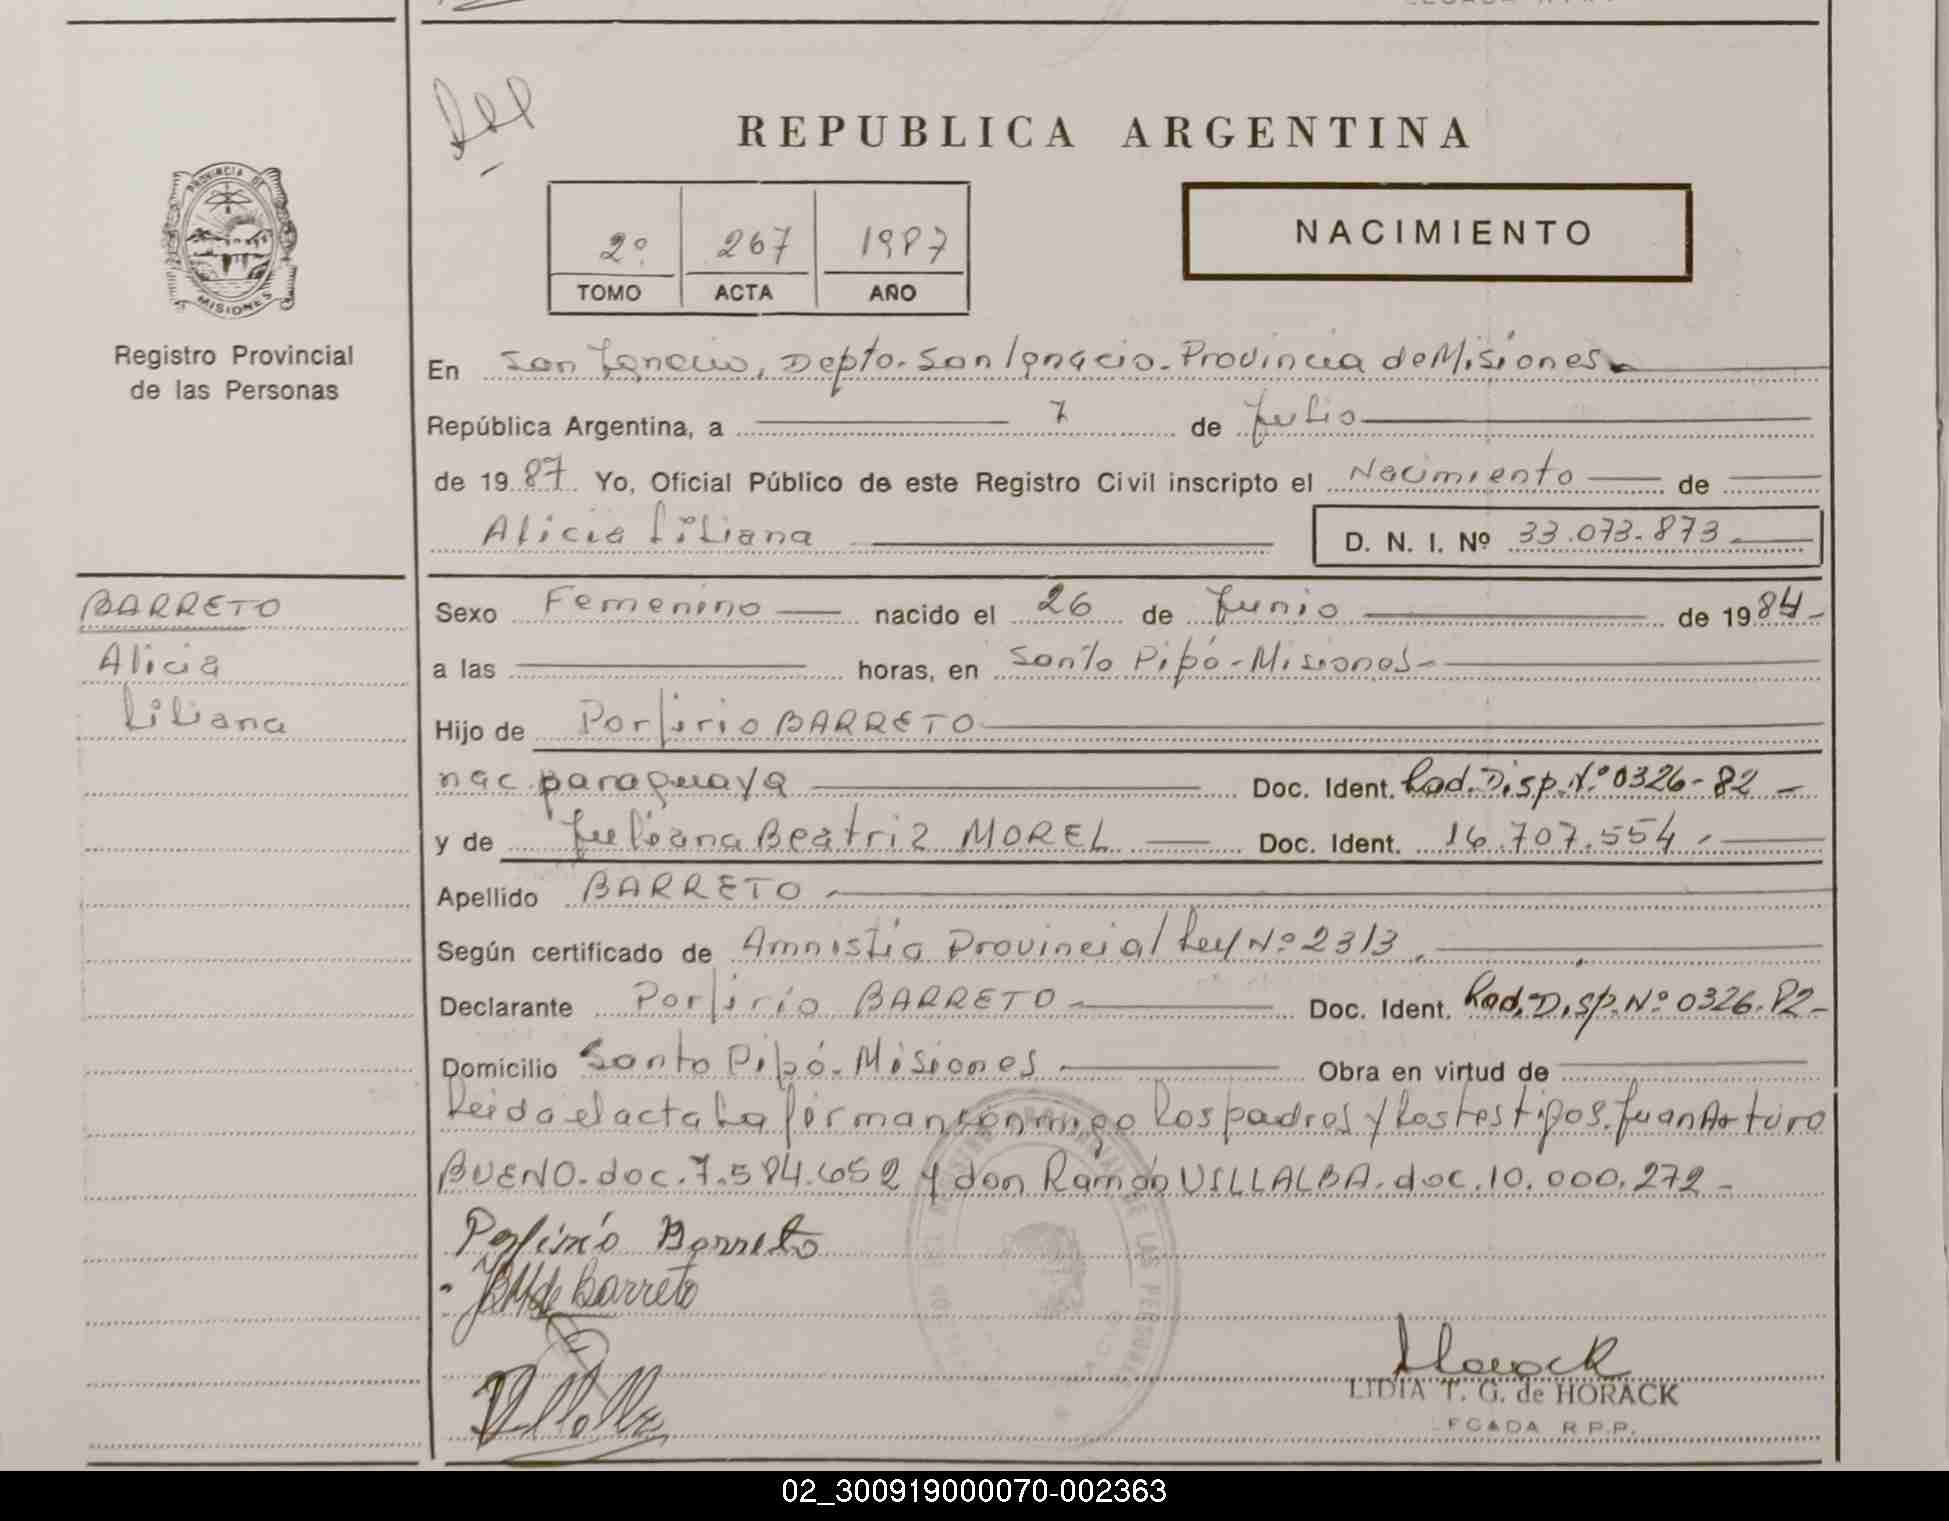 REPUBLICA ARGENTINA
PROVINCIA DE
MISIONES
Registro Provincial
de las Personas
2º 267 1987
TOMO ACTA AÑO
NACIMIENTO
En San Ignacio, Depto. San Ignacio. Provincia de Misiones
República Argentina, a 7 de Julio
de 1987 Yo, Oficial Público de este Registro Civil inscripto el Nacimiento de
Alicia Liliana D. N. I. Nº 33.073.873
BARRETO
Alicia
Liliana
Sexo Femenino nacido el 26 de Junio de 1984
a las horas, en Santo Pipó - Misiones
Hijo de Porfirio BARRETO
nac. paraguaya Doc. Ident. Rad. Disp. Nº 0326-82
y de Juliana Beatriz MOREL Doc. Ident. 16.707.554
Apellido BARRETO
Según certificado de Amnistia Provincial Ley Nº 2313
Declarante Porfirio BARRETO Doc. Ident. Rad. Disp. Nº 0326-82
Domicilio Santo Pipó - Misiones Obra en virtud de
Leida el acta la firman conmigo los padres y los testigos. Juan Arturo
BUENO. doc. 7.584.652 y don Ramón VILLALBA. doc. 10.000.272
Porfirio Barreto
de Barreto
Horack
LIDIA T. G. de HORACK
R.P.P.
02_300919000070-002363